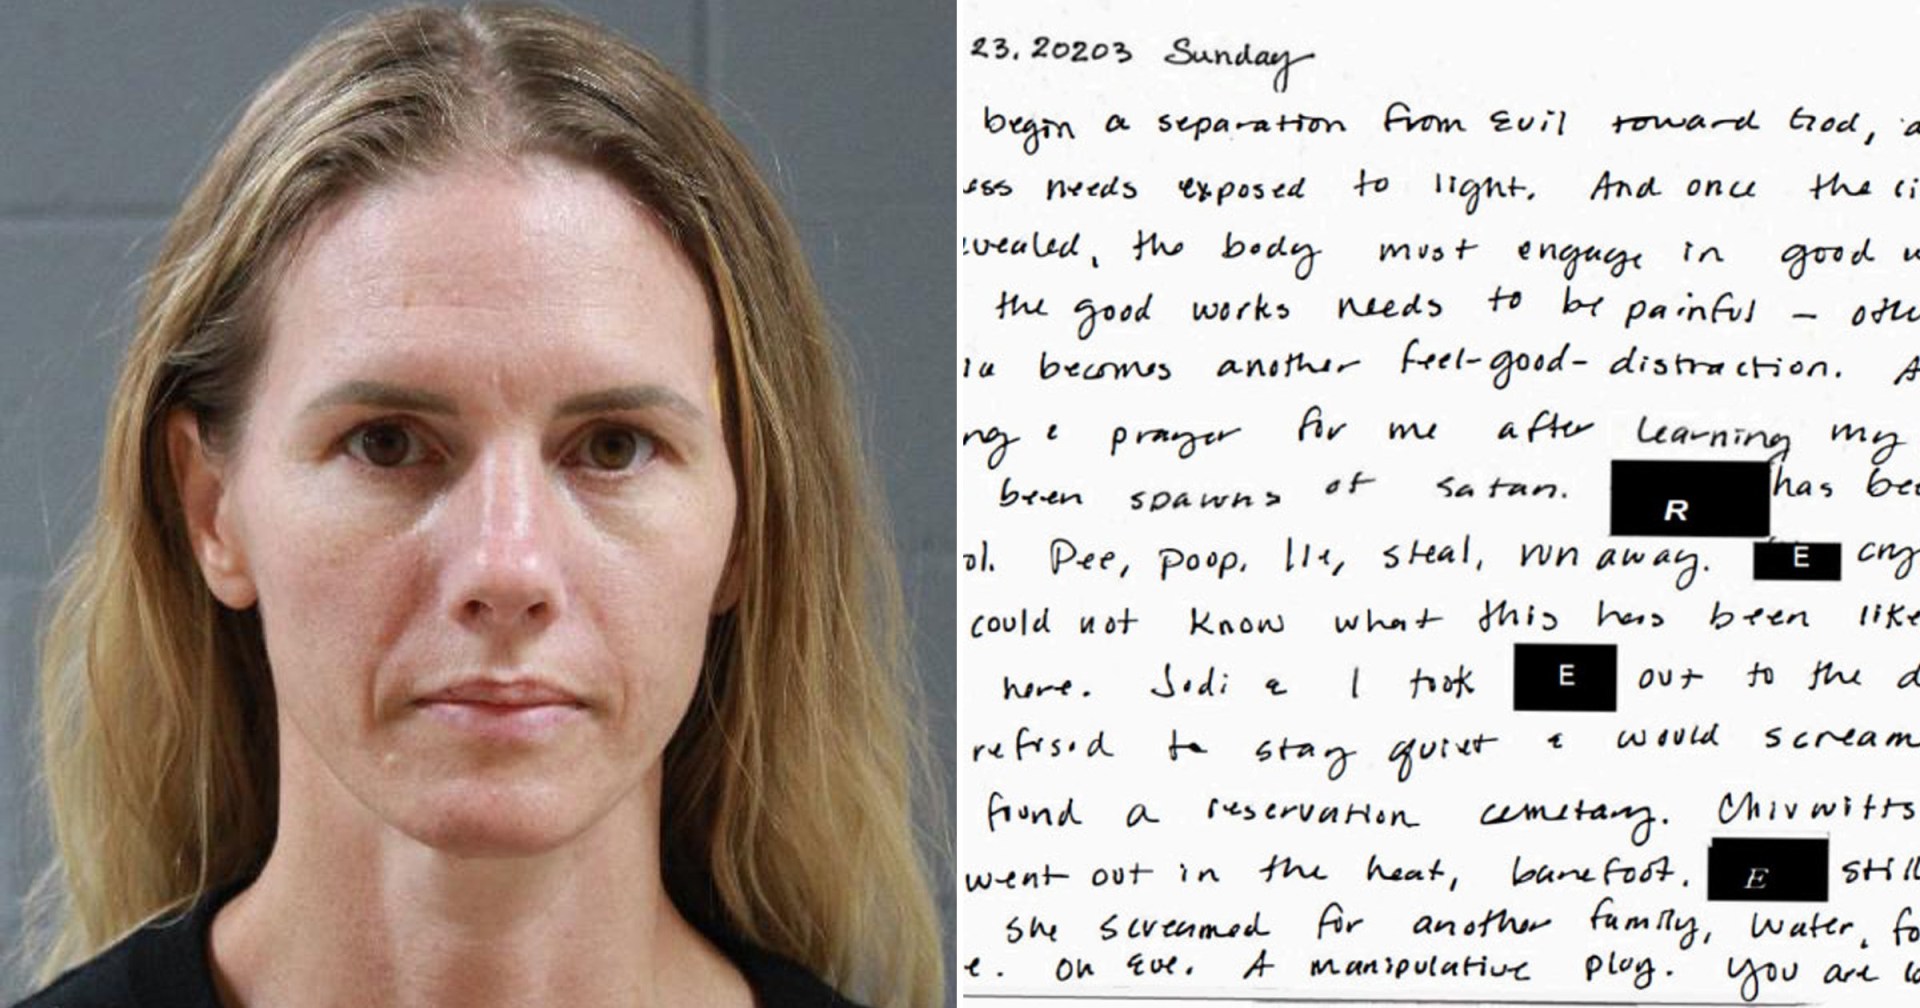 23, 20203 Sunday
begin a separation from Evil toward God, a
ess needs exposed to light. And once the li
evealed, the body must engage in good w
the good works needs to be painful – othe
ia becomes another feel-good-distraction. A
ng & prayer for me after learning my
been spawns of satan. R has bee
ol. Pee, poop, lie, steal, run away. E cry
could not know what this has been like
here. Jodi & I took E out to the d
refused to stay quiet & would scream
found a reservation cemetary. Chivwitts
went out in the heat, barefoot. E still
she screamed for another family, water, fo
e. Oh Eve. A manipulative ploy. You are